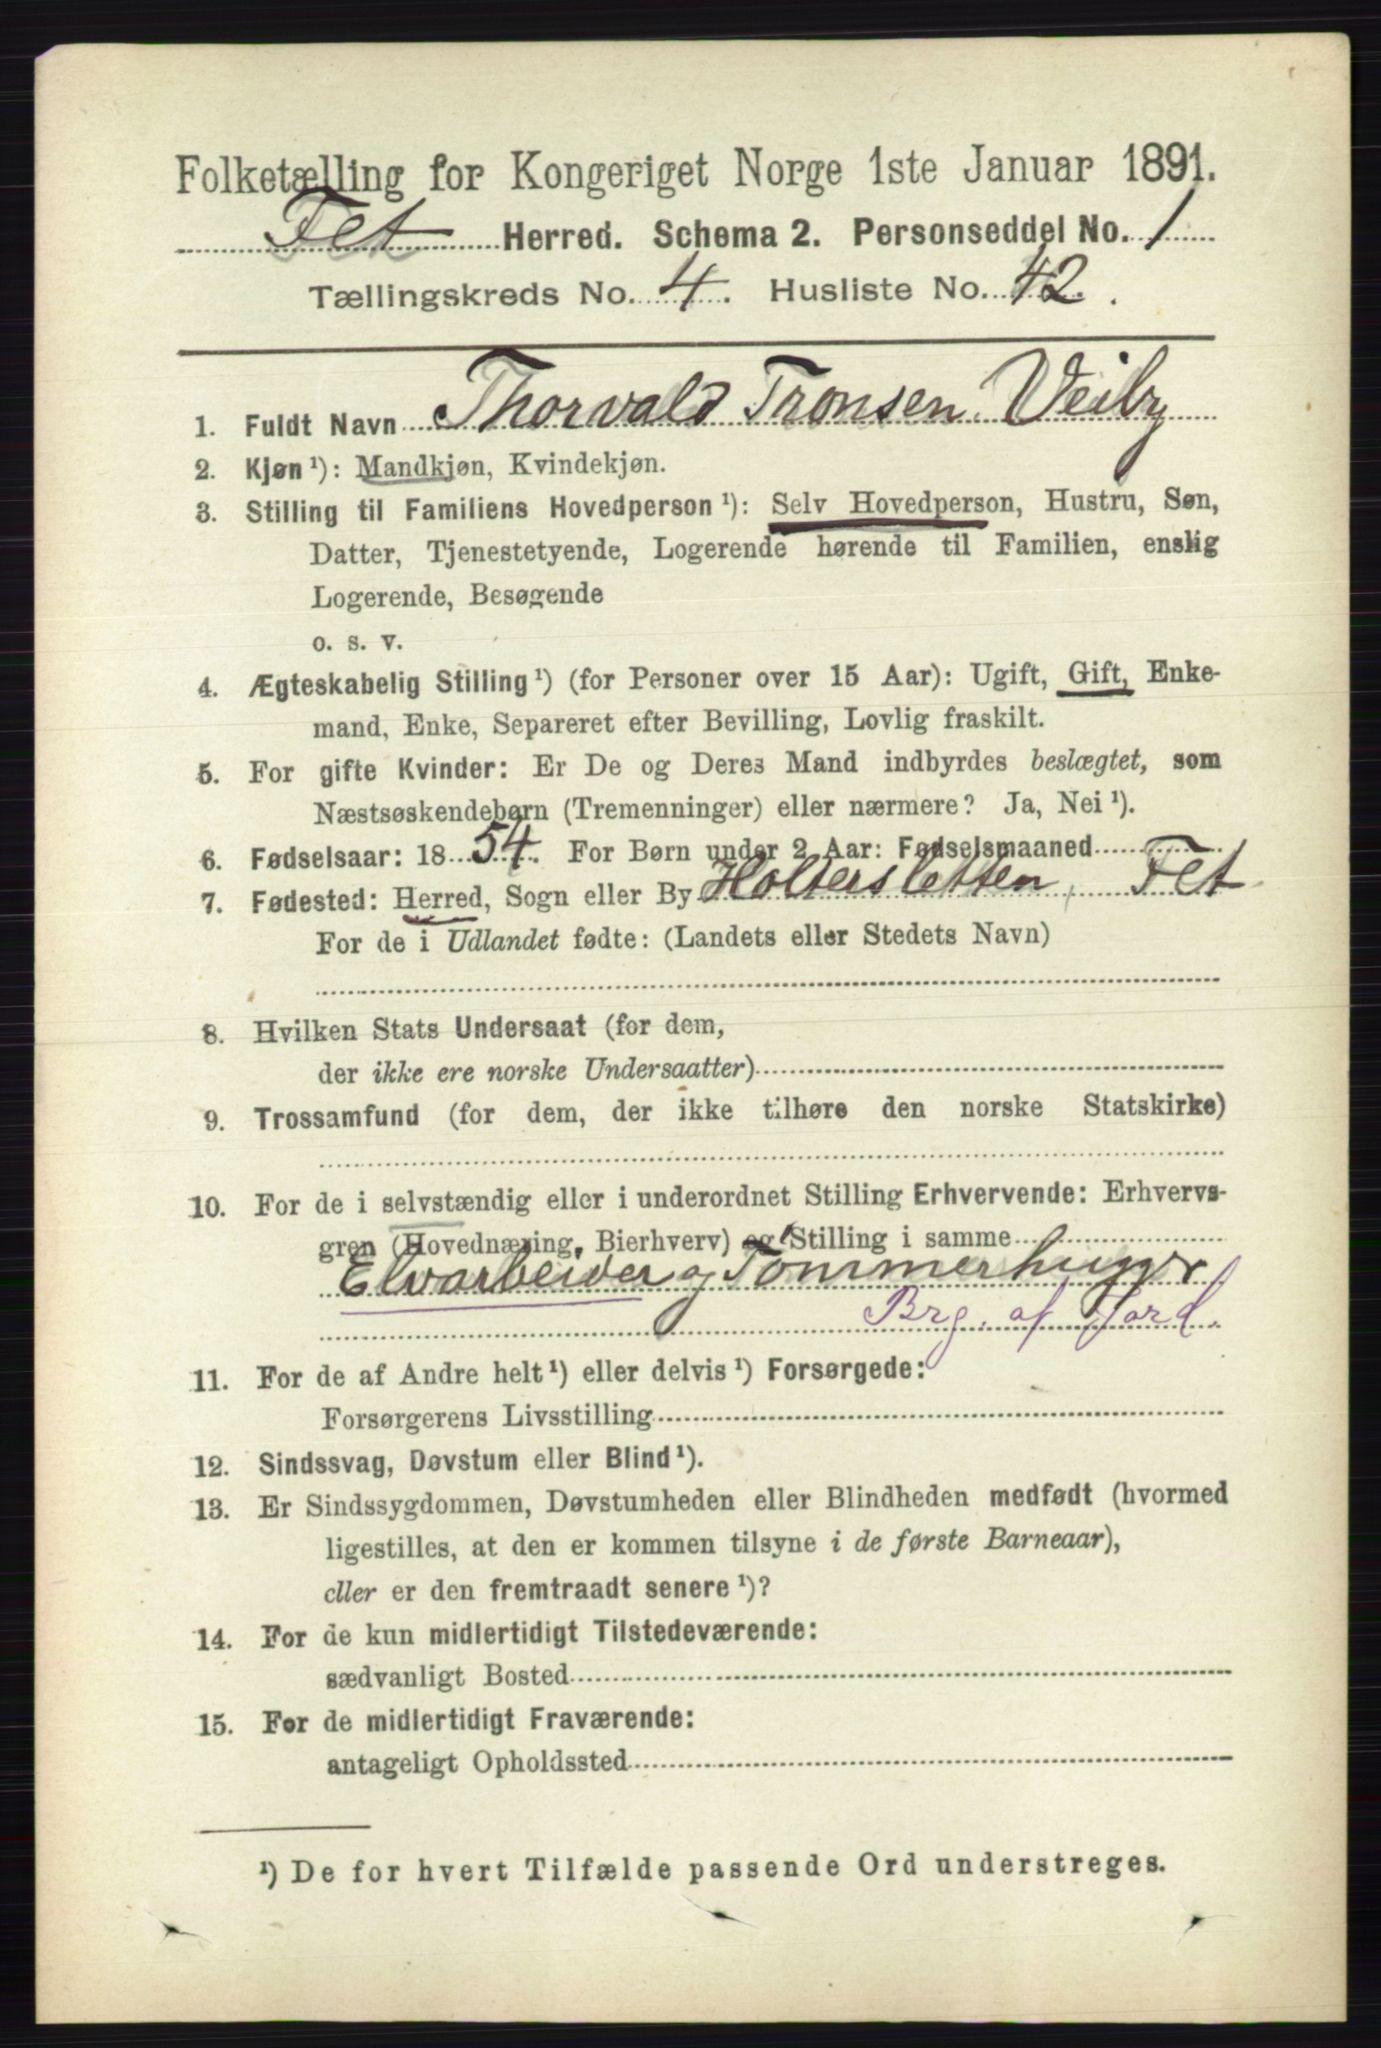 Folketælling for Kongeriget Norge 1ste Januar 1891.
Fet Herred. Schema 2. Personseddel No. 1
Tællingskreds No. 4. Husliste No. 42.
1. Fuldt Navn Thorvald Tronsen Veiby
2. Kjøn ¹): Mandkjøn, Kvindekjøn.
3. Stilling til Familiens Hovedperson ¹): Selv Hovedperson, Hustru, Søn,
Datter, Tjenestetyende, Logerende hørende til Familien, enslig
Logerende, Besøgende
o. s. v.
4. Ægteskabelig Stilling ¹) (for Personer over 15 Aar): Ugift, Gift, Enke-
mand, Enke, Separeret efter Bevilling, Lovlig fraskilt.
5. For gifte Kvinder: Er De og Deres Mand indbyrdes beslægtet, som
Næstsøskendebørn (Tremenninger) eller nærmere? Ja, Nei ¹).
6. Fødselsaar: 1854. For Børn under 2 Aar: Fødselsmaaned
7. Fødested: Herred, Sogn eller By Holtersletten, Fet
For de i Udlandet fødte: (Landets eller Stedets Navn)
8. Hvilken Stats Undersaat (for dem,
der ikke ere norske Undersaatter)
9. Trossamfund (for dem, der ikke tilhøre den norske Statskirke)
10. For de i selvstændig eller i underordnet Stilling Erhvervende: Erhvervs-
gren (Hovednæring, Bierhverv) og Stilling i samme
Elvarbeider og Tømmerhugger
Brg. af Jord.
11. For de af Andre helt ¹) eller delvis ¹) Forsørgede:
Forsørgerens Livsstilling
12. Sindssvag, Døvstum eller Blind ¹).
13. Er Sindssygdommen, Døvstumheden eller Blindheden medfødt (hvormed
ligestilles, at den er kommen tilsyne i de første Barneaar),
eller er den fremtraadt senere ¹)?
14. For de kun midlertidigt Tilstedeværende:
sædvanligt Bosted
15. For de midlertidigt Fraværende:
antageligt Opholdssted
¹) De for hvert Tilfælde passende Ord understreges.